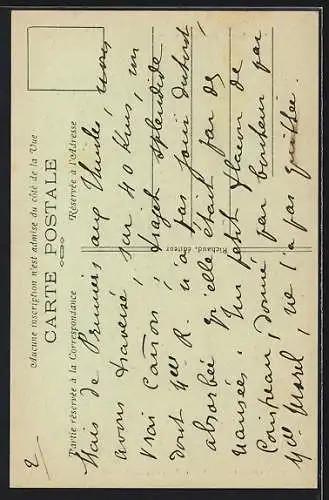 2
Aucune inscription n'est admise du côté de la Vue
CARTE POSTALE
Partie réservée à la Correspondance
Réservée à l'Adresse
Richaud, éditeur
Mais de Prunières aux Thuiles, nous
avons traversé, sur 40 Kms, un
vrai Cañon, trajet splendide
dont Mlle R. n'a pas joui d'abord
absorbée qu'elle était par des
nausées. Un petit flacon de
Cointreau, donné par bonheur par
Mlle Morel, ne l'a pas quittée.